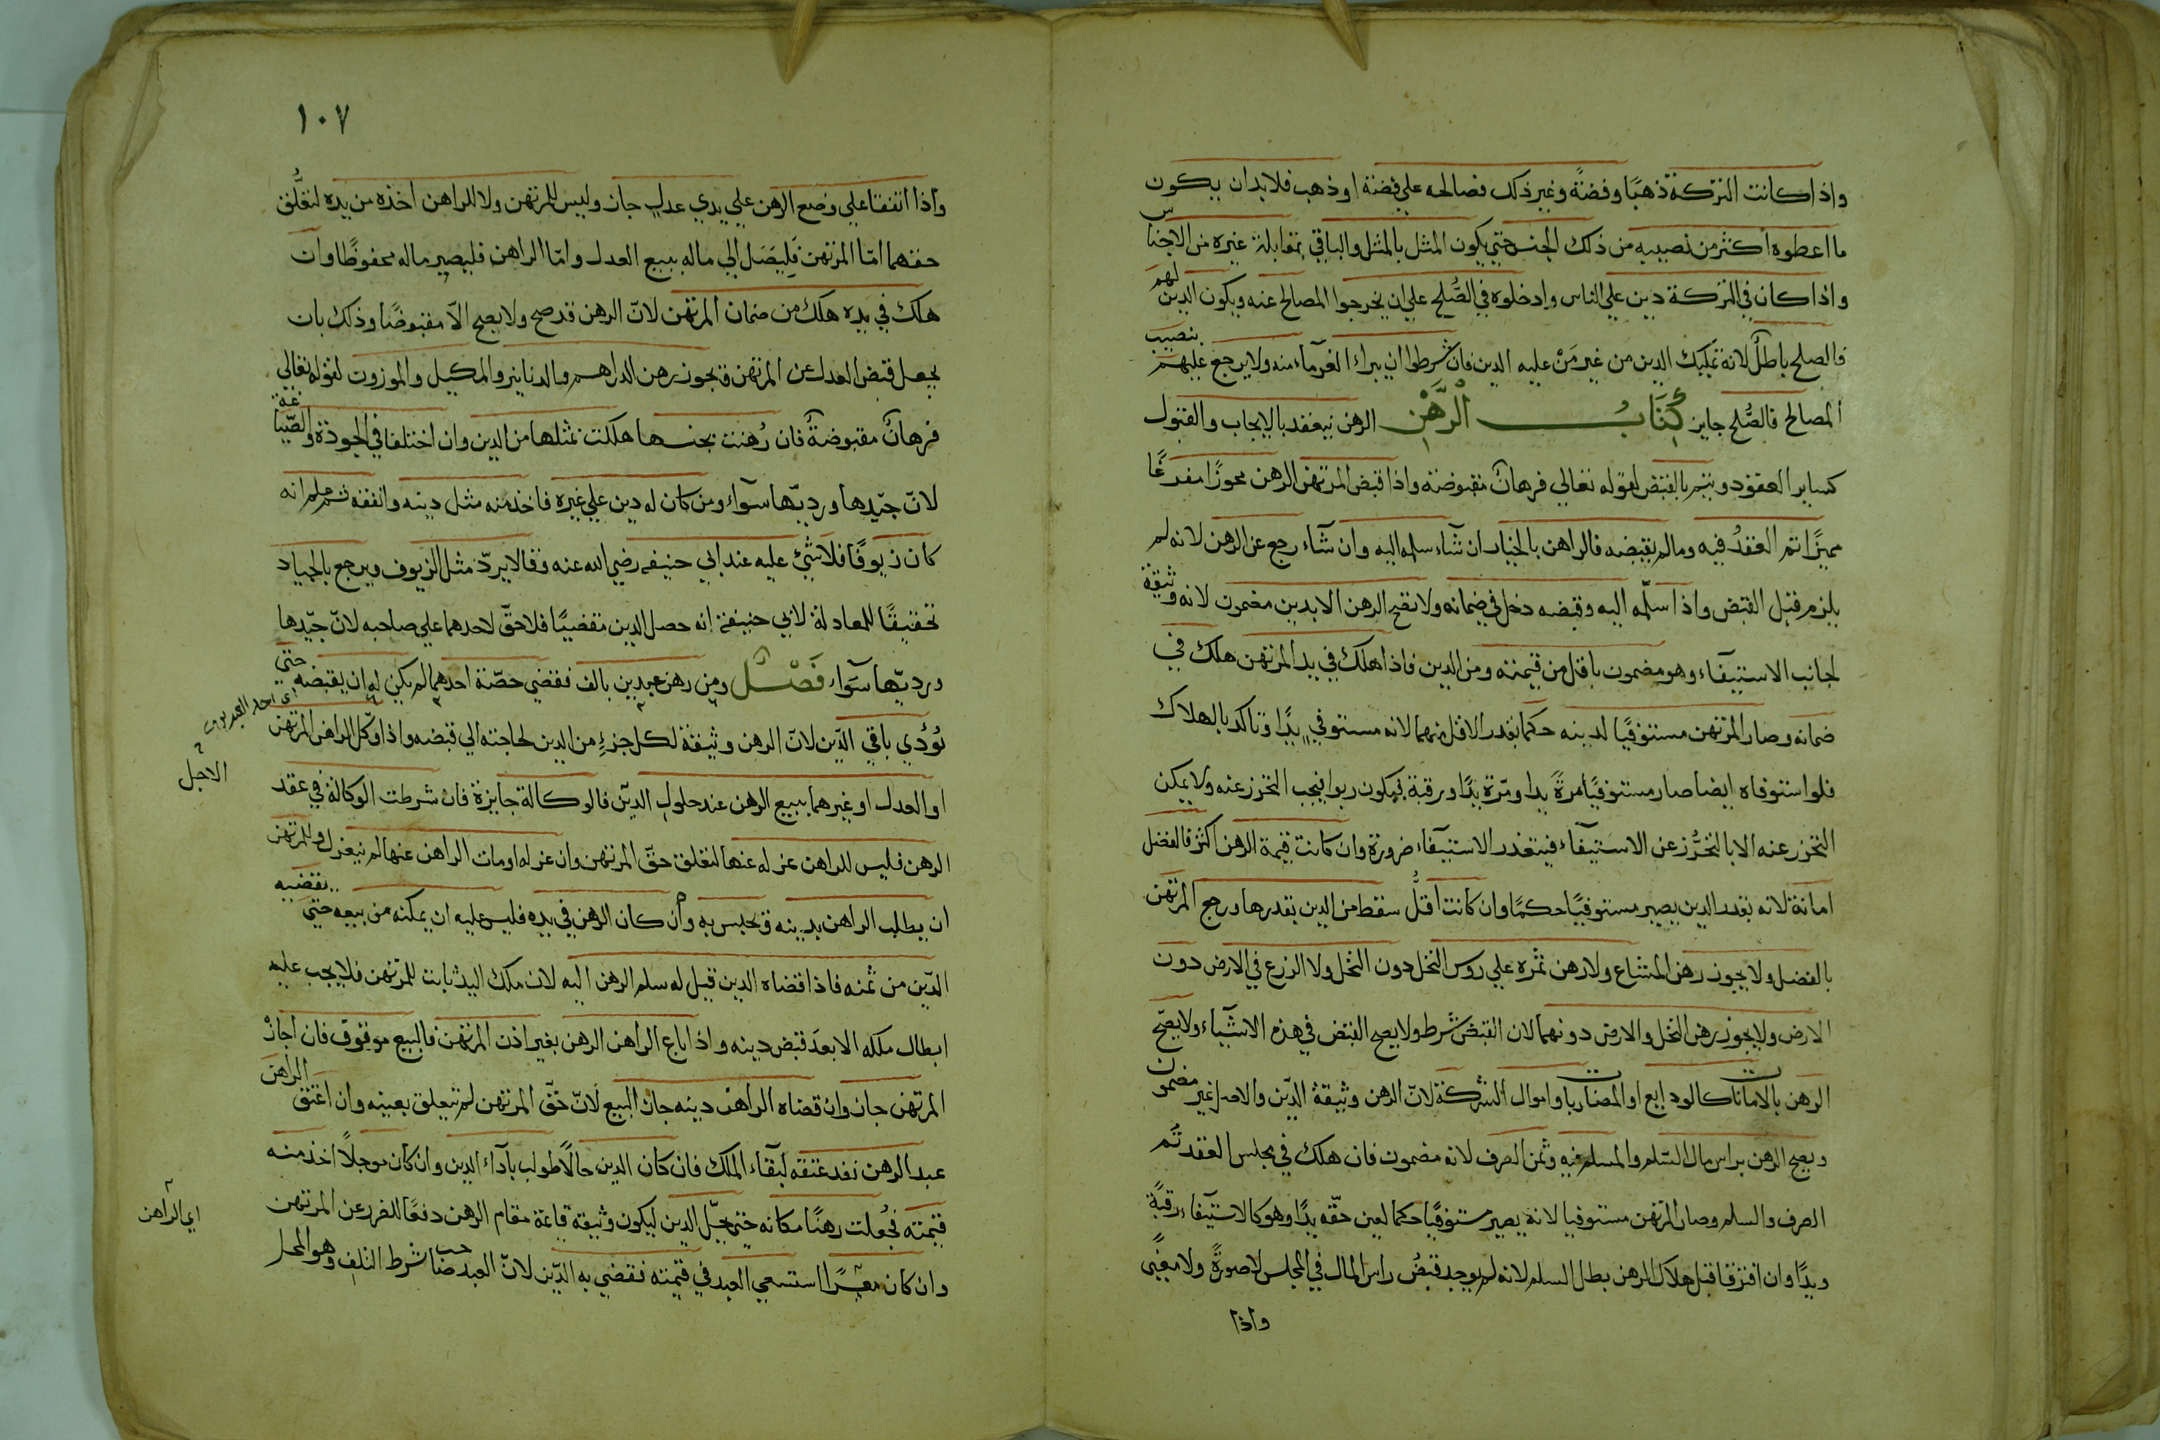 واذا كانت التركة ذهبًا وفضةً وغير ذلك فصالحه علي فضة او ذهب فلا بد ان يكون
ما اعطوه اكثر من نصيبه من ذلك الجنس حتي يكون المثل بالمثل والباقي بمقابلة غيره من الاجناس
واذا كان في التركة دين علي الناس وادخلوه في الصُّلح علي ان يخرجوا المصالح عنه ويكون الدين لهم
فالصلح باطلٌ لانه تمليك الدين من غير مَنْ عليه الدين فان شرطوا ان يبراء الغرمآء منه ولا يرجع عليهم بنصيب
المصالح فالصُّلح جايز كِتَابُ الرَّهْنِ الرهن ينعقد بالايجاب والقبول
كساير العقود ويتم بالقبض لقوله تعالي فرهانٌ مقبوضة واذا قبض المرتهن الرهن محوزًا مفرغًا
مميزًا تم العقدُ فيه وما لم يقبضه فالراهن بالخيار ان شآء سلمه اليه وان شآء رجع عن الرهن لانه لم
يلزم قبل القبض واذا سلّمه اليه وقبضه دخل في ضمانه ولا يصح الرهن الا بدين مضمون لانه وثيقة
لجانب الاستيفآء وهو مضمون باقل من قيمته ومن الدين فاذا هلك في يد المرتهن هلك في
ضمانه وصار المرتهن مستوفيًا لدينه حكمًا بقدر الاقل منهما لانه مستوفي يدًا وتاكد بالهلاك
فلو استوفاه ايضا صار مستوفيًا مرةً يدا ومّرة يدًا ورقبة فيكون ربوا فيجب التحرز عنه ولا يمكن
التحرز عنه الا بالتحرُّز عن الاستيفآء فيتعذر الاستيفآء ضرورة وان كانت قيمة الرهن اكثر فالفضل
امانة لانه بقدر الدين يصير مستوفيًا حكمًا وان كانت اقلُّ سقط من الدين بقدرها ورجع المرتهن
بالفضل ولا يجوز رهن المشاع ولا رهن ثمره علي روس النخل دون النخل ولا الزرع في الارض دون
الارض ولا يجوز رهن النخل والارض دونهما لان القبض شرط ولا يصح القبض في هذه الاشيآء ولا يصّح
الرهن بالامانات كالودايع او المضاربات واموال الشركة لانّ الرهن وثيقة الدّين والاصل غير مضمون
ويصح الرهن براس مال السّلم والمسلم فيه وثمن الصرف لانه مضمون فان هلك في مجلس العقد تم
الصرف والسلم وصار المرتهن مستوفيا لانه يصير مستوفيًا حكما لعين حقّه يدًا وهو كالاستيفآء رقبةً
ويدًا وان افترقا قبل هلاك الرهن بطل السلم لانه لم يوجد قبضُ راس المال في المجلس لا صورةً ولا معنًي
واذا
١٠٧
واذا اتفقا علي وضع الرهن علي يدي عدل جاز وليس للمرتهن ولا للراهن اخذه من يده لتعلُّق
حقهما امّا المرتهن فليصل الي ماله ببيع العدل وامّا الراهن فليصير ماله محفوظًا وان
هلك في يده هلك من ضمان المرتهن لانّ الرهن قد صح ولا يصح الاّ مقبوضًا وذلك بان
يجعل قبض العدل عن المرتهن ويجوز رهن الدراهم والدنانير والمكيل والموزون لقوله تعالي
فرهانٌ مقبوضةٌ فان رُهنت بجنسها هلكت بمثلها من الدين وان اختلفا في الجودة والصّياغة
لانّ جيّدها ورديّها سوآء ومن كان له دين علي غيره فاخذ منه مثل دينه وانفقه ثم علم انه
كان زيوفًا فلا شئ عليه عند ابي حنيفه رضي الله عنه وقالا يردّ مثل الزيوف ويرجع بالجياد
تحقيقًا للمعادلة لابي حنيفة انه حصل الدين مقضيًا فلا حقّ لاحدهما علي صاحبه لانّ جيّدها
ورديّها سَوآء فَصْل ومن رهن عبدين بالف فقضي حصّة احدهما لم يكن له ان يقبضه حتي
اى احد العبدين
يُؤدّي باقي الدّين لانّ الرهن وثيقة لكل جزءٍ من الدين لحاجته الي قبضه واذا وكّل الراهن المرتهن
الاجل
او العدل او غيرهما ببيع الرهن عند حلول الديّن فالوكالة جايزة فان شرطت الوكالة في عقد
الرهن فليس للراهن عزله عنها لتعلق حقّ المرتهن وان عزله او مات الراهن عنها لم ينعزل وللمرتهن
ان يطلب الراهن بدينه ويحبس به وان كان الرهن في يده فليس عليه ان يمكنه من بيعه حتي يقضيه
الدّين من ثمنه فاذا قضاه الدين قيل له سلم الرهن اليه لان ملك اليد ثابت للمرتهن فلا يجب عليه
ابطال ملكه الا بعدَ قبض دينه واذا باع الراهن الرهن بغير اذن المرتهن فالبيع موقوف فان اجازْ
المرتهن جاز وان قضاه الراهن دينه جاز البيع لانّ حقّ المرتهن لم يتعلق بعينه وان اعتق الراهن
عبد الرهن نفد عتقه لبقآء الملك فان كان الدين حالاً طولب بآدآء الدين وان كان موجلاً اخذ منه
قيمته فجُعلت رهنًا مكانه حتي يحلّ الدين ليكون وثيقة قايمة مقام الرهن دفعًا للضرر عن المرتهن
اي الراهن
وان كان معسرًا استسعي العبد في قيمته فقضي به الدّين لانّ العبد صاحب شرط التلف وهو المحل